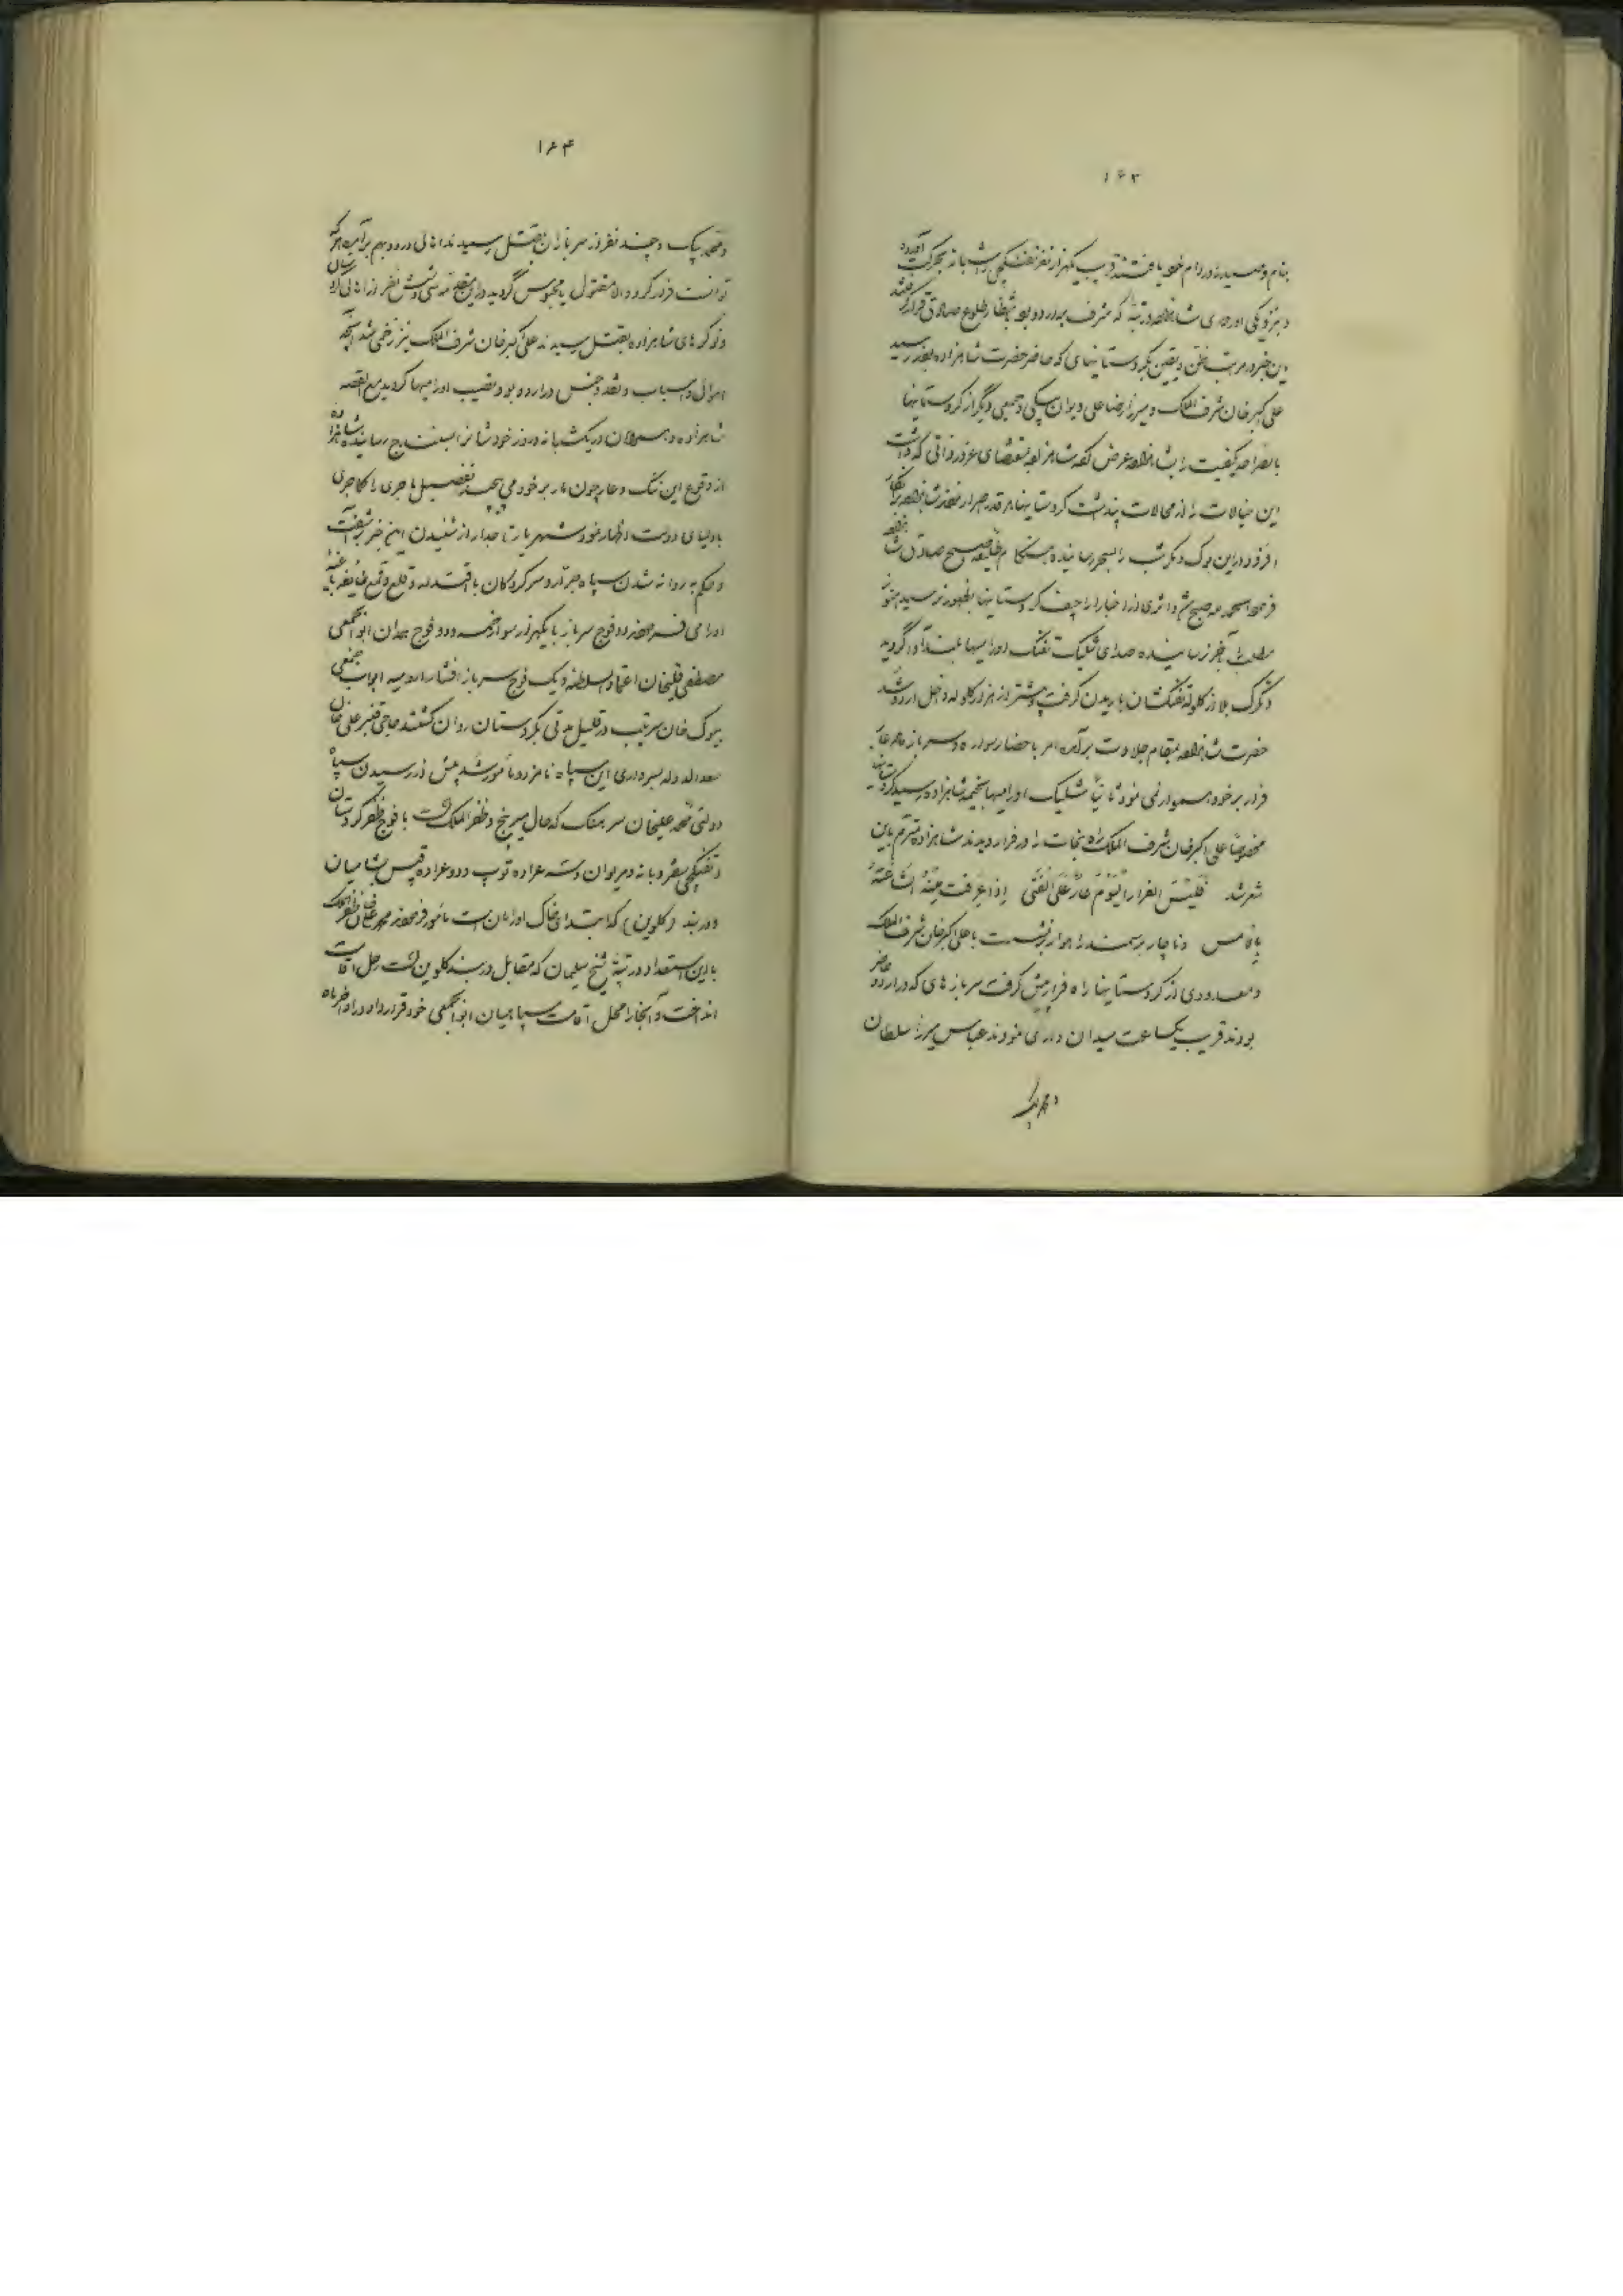 ۱۶۳
بنام وصید را در دام خود یافتند قریب یکهزار نفر تفنگچی را شبانه بحرکت آورده
در نزدیکی اردوی شاهزاده در تپهٔ که مشرف به اردو بود بانتظار طلوع صبح صادق قرار گرفتند
این خبر در مرتبهٔ ظن و یقین بکردستانیهای که حاضر حضرت شاهزاده بودند رسید
علی اکبر خان شرف الملک و میرزا رضا علی دیوان بیگی و جمعی دیگر از کردستانیها
بالصراحه کیفیت را بشاهزاده عرض کرده شاهزاده بمقتضای غرور ذاتی که داشت
این خیالات را از محالات پنداشت کردستانیها هر قدر اصرار نمودند شاهزاده بر انکار
افزود در این بوک و مکر شب را بسحر رسانیده هنگام طلیعه صبح صادق شاهزاده
فرمود الحمد لله صبح شد و اثری از اخبار اراجیف کردستانیها بظهور نرسید هنوز
مطلب را بآخر نرسانیده صدای شلیک تفنگ اورامیها بلند آوا گردید
و تگرگ بلا از گلوله تفنگشان باریدن گرفت بیشتر از هزار گلوله داخل اردو شد
حضرت شاهزاده بمقام جلادت برآمده امر باحضار سواره و سرباز فرمود عار
فرار بر خود هموار نمی نمود ثانیاً شلیک اورامیها بخیمه شاهزاده رسید کردستانیها
مخصوصاً علی اکبر خان شرف الملک راه نجات را در فرار دیدند شاهزاده مترنم باین
شعر شد فَلَیْسَ الفرار الیَوْمَ عارٌ عَلَی الفَتی اِذا عرفت مِنْهُ الشَّجاعَةُ
بِالاَمس و ناچار بر سمند راهوار نشست با علی اکبر خان شرف الملک
و معدودی از کردستانیها راه فرار پیش گرفت سربازهای که در اردو حاضر
بودند قریب یکساعت میدان داری نمودند عباس میرزا سلطان
و محمد بیک
۱۶۴
و محمد بیک و چند نفر از سربازان بقتل رسیدند اهالی اردو بهم برآمده هر که
توانست فرار کرد و الا مقتول یا محبوس گردید در این مقدمه سی و شش نفر از اهالی اردو
و نوکرهای شاهزاده بقتل رسیدند علی اکبر خان شرف الملک نیز زخمی شد آنچه
اموال و اسباب و نقد و جنس در اردو بود نصیب اورامیها گردید مع القصه
شاهزاده و همراهان در یکشبانه روز خودشانرا بسنندج رسانیدند شاهزاده
از وقوع این ننگ و عار چون مار بر خود می پیچید تفصیل ماجری را کماجری
باولیای دولت اظهار نمود شهریار تاجدار از شنیدن این خبر برآشفت
و حکم به روانه شدن سپاه جرار و سرکردگان با اقتدار و قلع و قمع طایفه باغیه
اورامی فرمودند دو فوج سرباز با یکهزار سوار خمسه و دو فوج همدان ابوابجمعی
مصطفی قلیخان اعتماد السلطنه و یک فوج سرباز افشار ارومیه ابواب جمعی
بیوک خان سرتیپ در قلیل مدتی بکردستان روان گشتند حاجی قنبر علی خان
سعد الدوله بسرداری این سپاه نامزد و مأمور شد پیش از رسیدن سپاه
دولتی محمد علیخان سرهنگ که حال میرپنج و ظفر الملک است با فوج ظفر کردستان
و تفنگچی سقز و بانه و مریوان و سه عراده توپ و دو عراده قپس بشامیان
و دربند (کلوین) که ابتدای خاک اورامان است مأمور فرمودند محمد علی خان ظفر الملک
با این استعداد در تپهٔ شیخ سلیمان که مقابل دربند کلوین است رحل اقامت
انداخت و آنجا را محل اقامت سپاهیان ابوابجمعی خود قرار داد در اواخر ماه